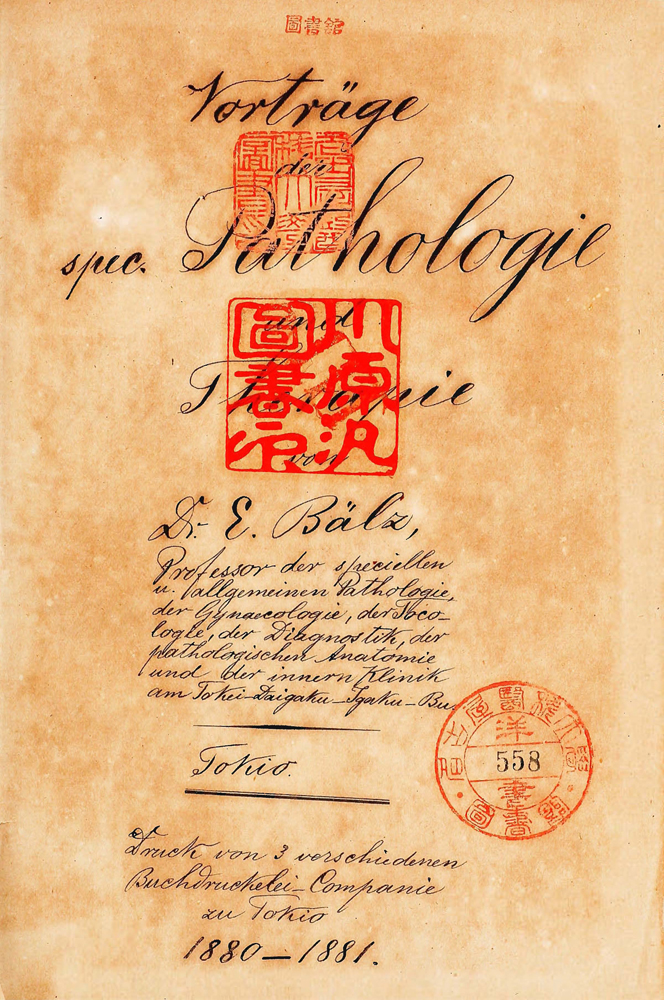 圖書館
Vorträge
der
spec. Pathologie
und
Therapie
von
川原汎
圖書印
Dr. E. Bälz,
Professor der speciellen
u. allgemeinen Pathologie,
der Gynaecologie, der Toco-
logie, der Diagnostik, der
pathologischen Anatomie
und der innern Klinik
am Tokei-Daigaku-Igaku-Bu.
洋
558
書
Tokio.
Druck von 3 verschiedenen
Buchdruckelei-Companie
zu Tokio
1880—1881.